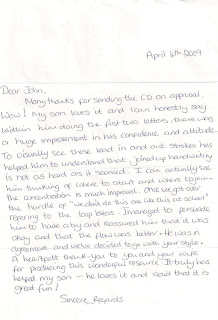 April 16th 2009
Dear John,
Many thanks for sending the CD on approval.
Wow! My son loves it and I can honestly say
within him doing the first two letters, there was
a huge improvement in his confidence and attitude.
To visually see these lead in and out strokes has
helped him to understand that joined up handwriting
is not as hard as it seemed. I can actually see
him thinking of where to start and where to join -
the concentration is much improved. Once we got over
the hurdle of "we don't do this one like this at school"
refering to the loop letters. I managed to persuade
him to have a try and reassured him that it was
okay and that the flow was better. He was in
agreement and we've decided to go with your style.
A heartfelt thank-you to you and your wife
for producing this wonderful resource. It truly has
helped my son - he loves it and said that it is
great fun!
Sincere Regards